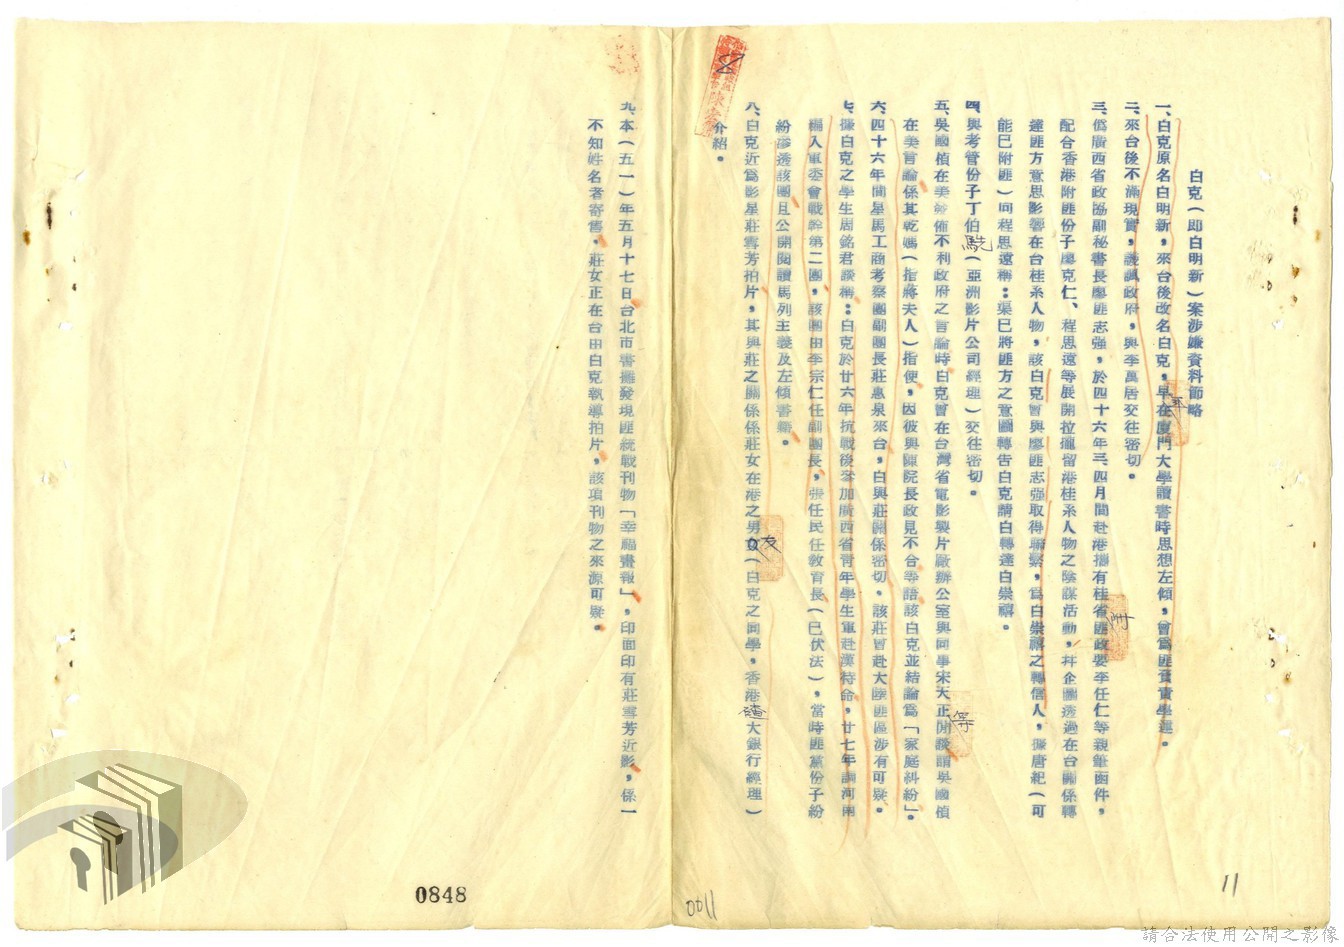 白克(即白明新)案涉嫌資料節略
一、白克原名白明新,來台後改名白克,早在廈門大學讀書時思想左傾,曾為匪黨責學運。
二、來台後不滿現實,譏諷政府,與李萬居交往密切。
三、偽廣西省政協副秘書長廖匪志强,於四十六年三、四月間赴港攜有桂省匪政要李任仁等親筆函件,
配合香港附匪份子廖克仁、程思遠等展開拉攏留港桂系人物之陰謀活動,并企圖透過在台關係轉
達匪方意思影響在台桂系人物,該白克曾與廖匪志强取得聯繫,為白崇禧之轉信人,據唐紀(可
能已附匪)向程思遠稱:渠已將匪方之意圖轉告白克請白轉達白崇禧。
四、與考管份子丁伯駪(亞洲影片公司經理)交往密切。
五、吳國楨在美散佈不利政府之言論時白克曾在台灣省電影製片廠辦公室與同事宋天正等閒談謂吳國楨
在美言論係其乾媽(指蔣夫人)指使,因彼與陳院長政見不合等語該白克並結論為「家庭糾紛」。
六、四十六年間星馬工商考察團副團長莊惠泉來台,白與莊關係密切。該莊曾赴大陸匪區涉有可疑。
七、據白克之學生周銘君談稱:白克於廿六年抗戰後參加廣西省青年學生軍赴漢待命,廿七年調河南
編入軍委會戰幹第二團,該團由李宗仁任副團長,張任民任教育長(已伏法),當時匪黨份子紛
紛滲透該團且公開閱讀馬列主義及左傾書籍。
八、白克近為影星莊雪芳拍片,其與莊之關係係莊女在港之男友(白克之同學,香港渣大銀行經理)
介紹。
九、本(五一)年五月十七日台北市書攤發現匪統戰刊物「幸福畫報」,印面印有莊雪芳近影,係一
不知姓名者寄售,莊女正在台由白克執導拍片,該項刊物之來源可疑。
0848
0011
11
請合法使用公開之影像